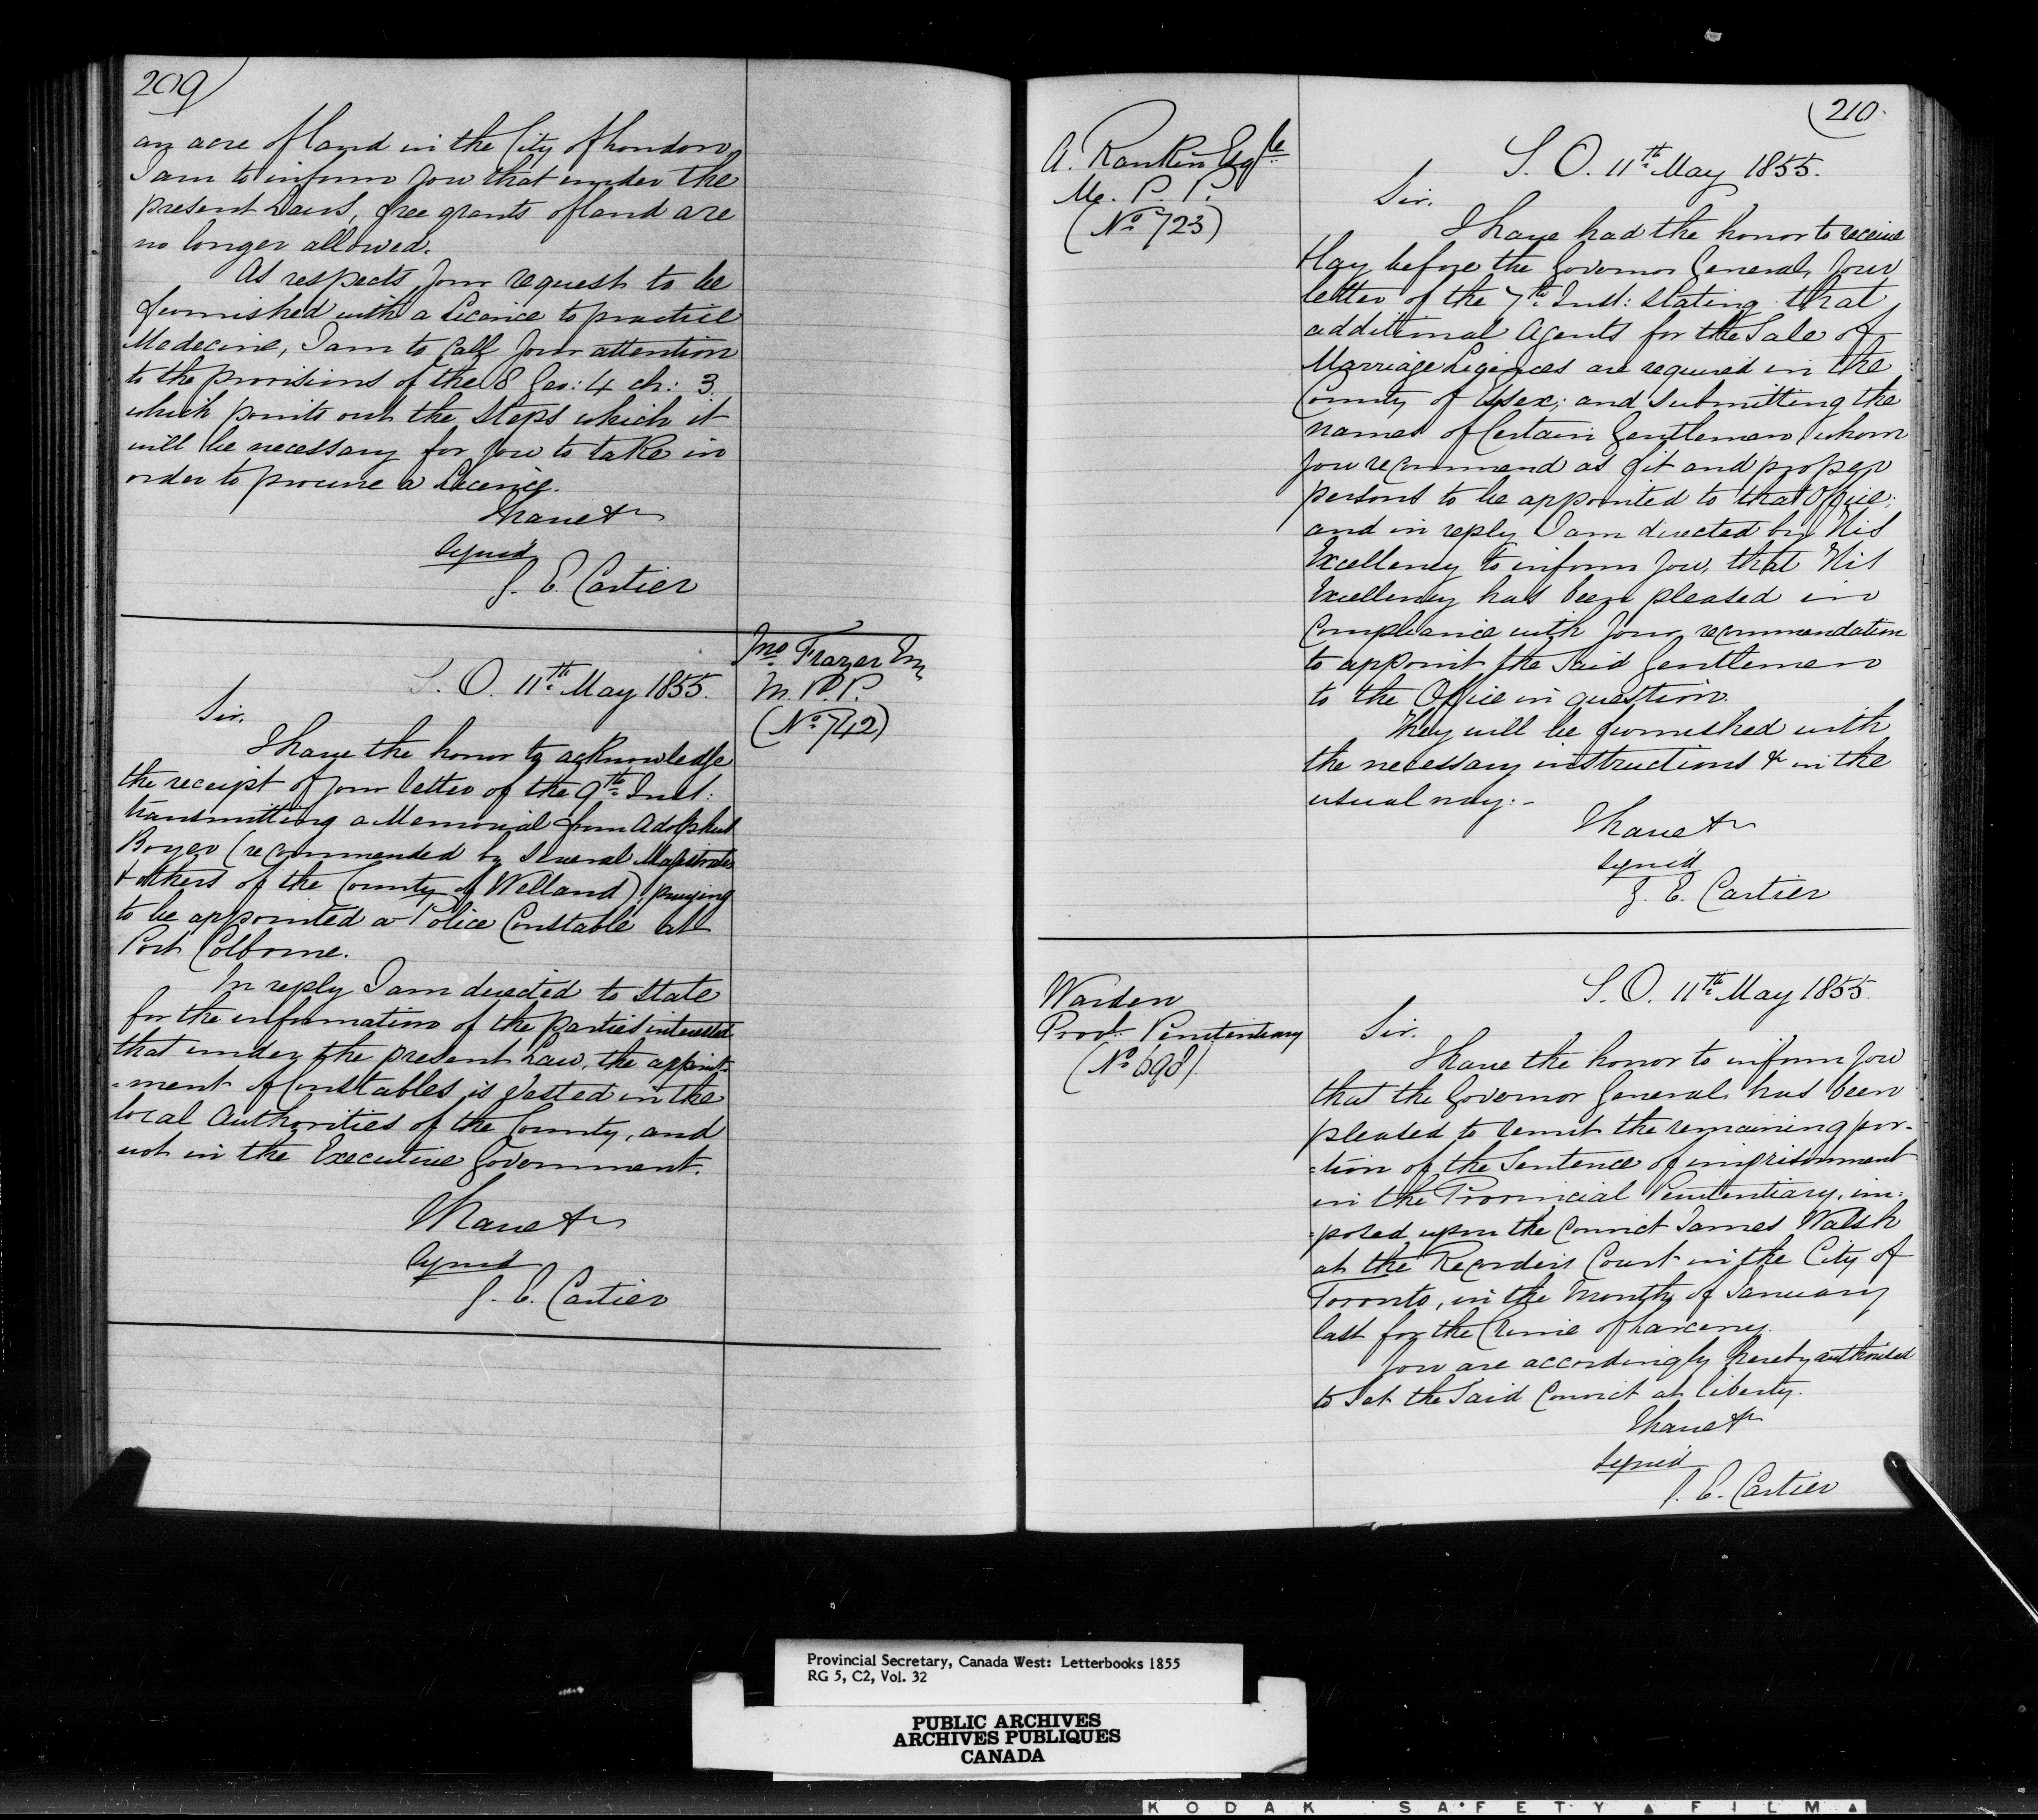 209
an acre of land in the City of London,
I am to inform you that under the
present Laws, free grants of land are
no longer allowed.
As respects your request to be
furnished with a Licence to practice
Medecine, I am to call your attention
to the provisions of the 8 Geo: 4 ch: 3.
which points out the steps which it
will be necessary for you to take in
order to procure a Licence.
I have &c
signed
G. E. Cartier
Jno Frazer Esq
M. P. P.
(No 742)
S. O. 11th May 1855.
Sir,
I have the honor to acknowledge
the receipt of your letter of the 9th Inst:
transmitting a Memorial from Adolphus
Boyer (recommended by several Magistrates
& others of the County of Welland) praying
to be appointed a Police Constable at
Port Colborne.
In reply I am directed to state
for the information of the parties interested
that under the present Law, the appoint-
=ment of Constables is vested in the
local Authorities of the County, and
not in the Executive Government.
I have &c
signed
G. E. Cartier
210.
A. Rankin Esqre
M. P. P.
(No 723)
S. O. 11th May 1855.
Sir,
I have had the honor to receive
& lay before the Governor General, your
letter of the 7th Inst: stating that
additional Agents for the Sale of
Marriage Licences are required in the
County of Essex; and submitting the
names of Certain Gentlemen whom
you recommend as fit and proper
persons to be appointed to that Office;
and in reply I am directed by His
Excellency to inform you, that His
Excellency has been pleased in
Compliance with your recommendation
to appoint the said Gentlemen
to the Office in question.
They will be furnished with
the necessary instructions & in the
usual way:-
I have &c
signed
G. E. Cartier
Warden
Provl. Penitentiary
(No 698).
S. O. 11th May 1855.
Sir,
I have the honor to inform you
that the Governor General has been
pleased to remit the remaining por-
=tion of the Sentence of imprisonment
in the Provincial Penitentiary, im=
=posed upon the Convict James Walsh
at the Recorder's Court in the City of
Toronto, in the Month of January
last for the Crime of Larceny.
You are accordingly hereby authorised
to set the said Convict at liberty.
I have &c
signed
G. E. Cartier
Provincial Secretary, Canada West: Letterbooks 1855
RG 5, C2, Vol. 32
PUBLIC ARCHIVES
ARCHIVES PUBLIQUES
CANADA
KODAK SAFETY FILM